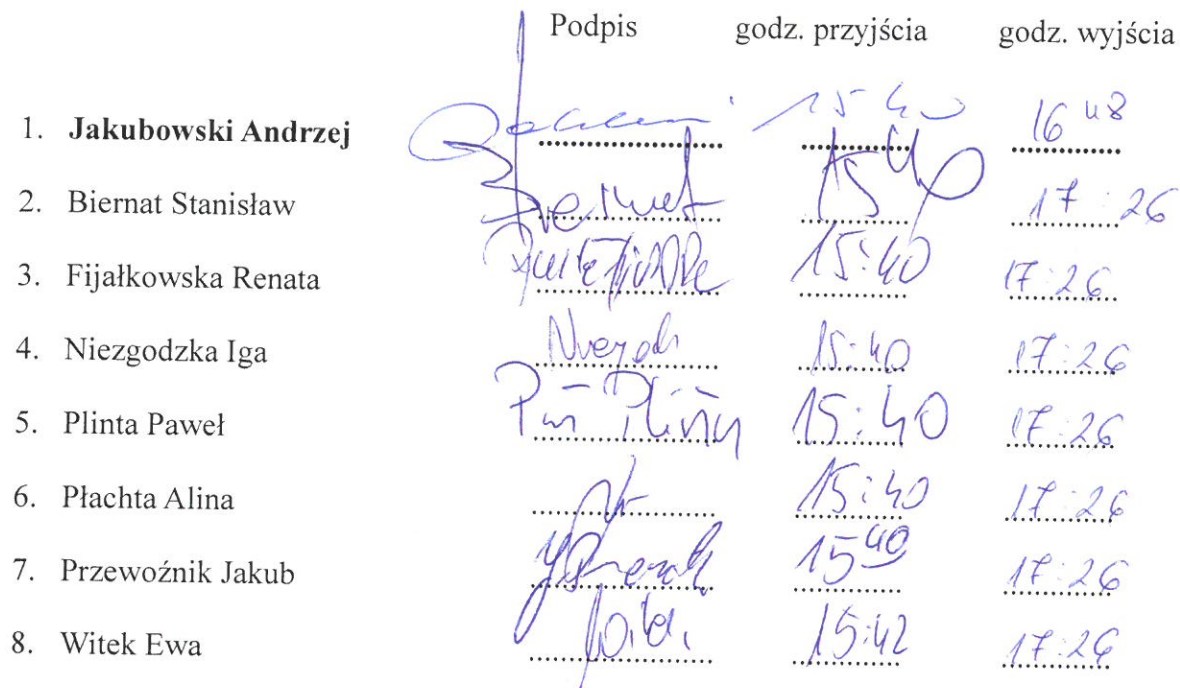 Podpis godz. przyjścia godz. wyjścia
1. Jakubowski Andrzej 15 40 16 48
2. Biernat Stanisław Biernat 17:26
3. Fijałkowska Renata 15:40 17:26
4. Niezgodzka Iga 15:40 17:26
5. Plinta Paweł 15:40 17:26
6. Płachta Alina 15:40 17:26
7. Przewoźnik Jakub 15 40 17:26
8. Witek Ewa 15:42 17:26